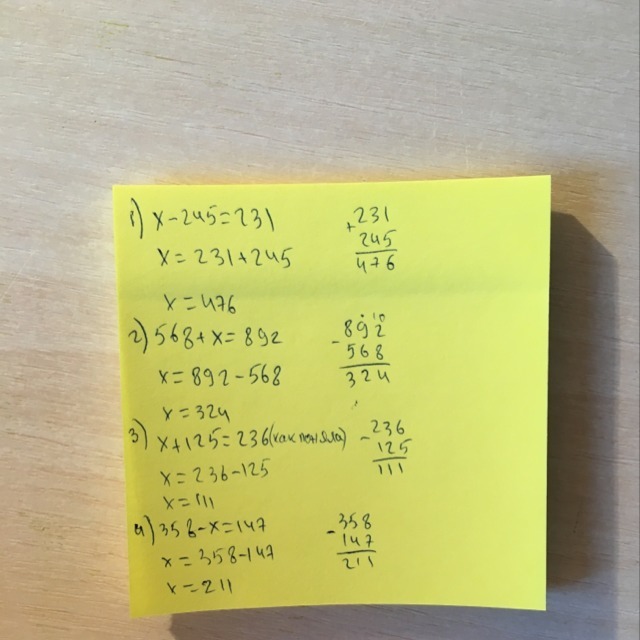 1) x-245=231
x=231+245
x=476
+231
245
476
2) 568+x=892
x=892-568
x=324
10
-892
568
324
3) x+125=236(как поняла)
x=236-125
x=111
-236
125
111
4) 358-x=147
x=358-147
x=211
-358
147
211